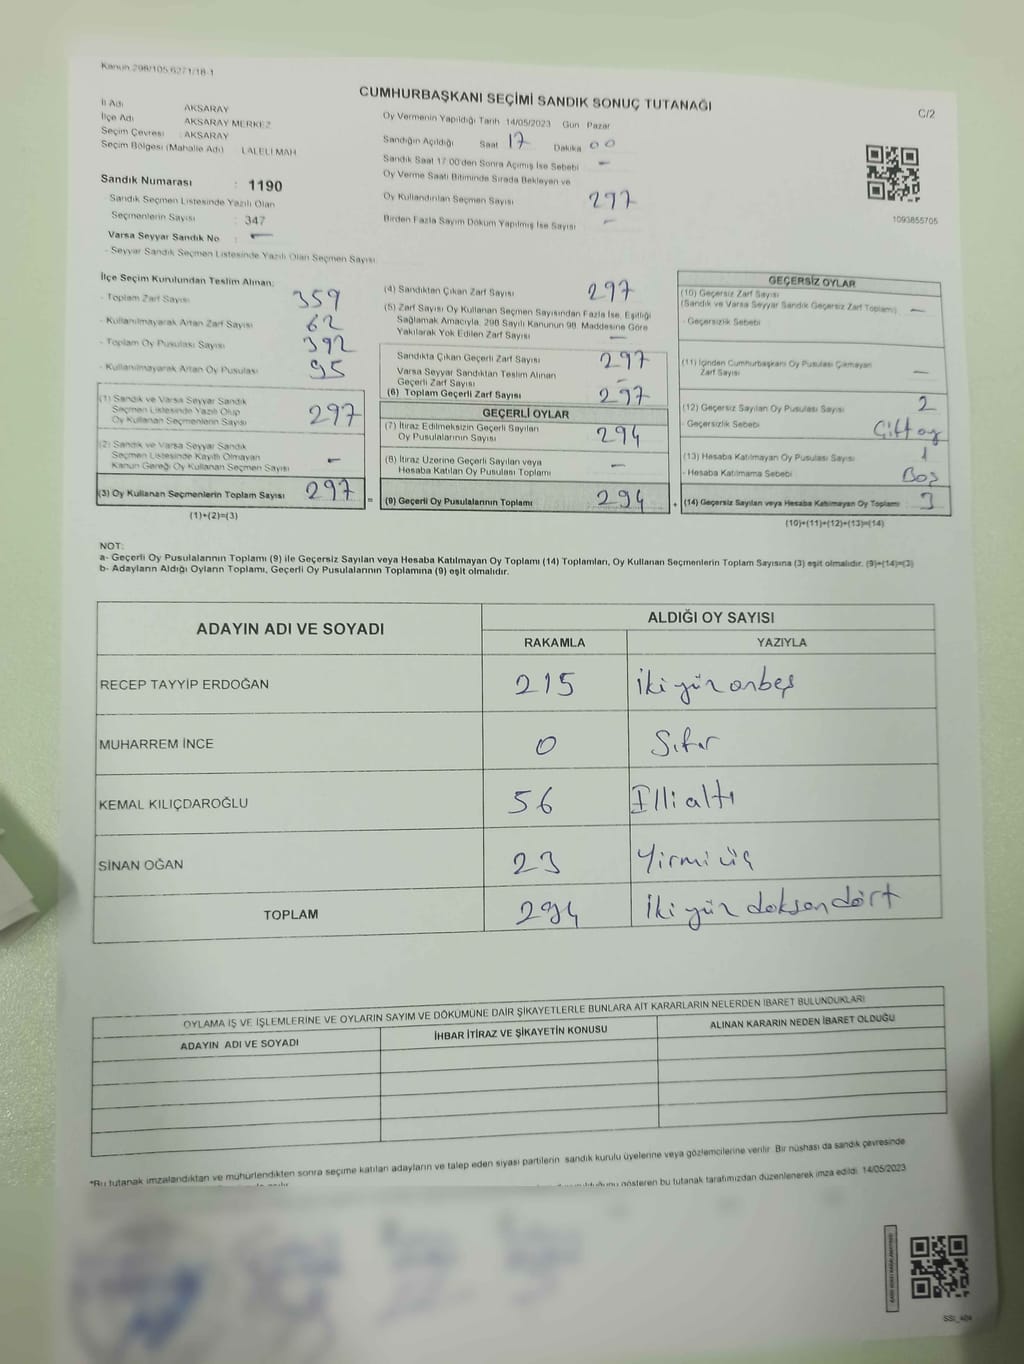 Kanun 298/105 6271/18-1
CUMHURBAŞKANI SEÇİMİ SANDIK SONUÇ TUTANAĞI
C/2
İl Adı AKSARAY
İlçe Adı AKSARAY MERKEZ
Seçim Çevresi : AKSARAY
Seçim Bölgesi (Mahalle Adı) LALELİ MAH
Sandık Numarası : 1190
- Sandık Seçmen Listesinde Yazılı Olan
Seçmenlerin Sayısı : 347
Varsa Seyyar Sandık No : —
- Seyyar Sandık Seçmen Listesinde Yazılı Olan Seçmen Sayısı
Oy Vermenin Yapıldığı Tarih 14/05/2023 Gün Pazar
Sandığın Açıldığı Saat 17 Dakika 00
Sandık Saat 17:00'den Sonra Açılmış İse Sebebi —
Oy Verme Saati Bitiminde Sırada Bekleyen ve
Oy Kullandırılan Seçmen Sayısı 297
Birden Fazla Sayım Döküm Yapılmış İse Sayısı —
1093855705
İlçe Seçim Kurulundan Teslim Alınan:
- Toplam Zarf Sayısı 359
- Kullanılmayarak Artan Zarf Sayısı 62
- Toplam Oy Pusulası Sayısı 392
- Kullanılmayarak Artan Oy Pusulası 95
(1) Sandık ve Varsa Seyyar Sandık
Seçmen Listesinde Yazılı Olup
Oy Kullanan Seçmenlerin Sayısı 297
(2) Sandık ve Varsa Seyyar Sandık
Seçmen Listesinde Kayıtlı Olmayan
Kanun Gereği Oy Kullanan Seçmen Sayısı —
(3) Oy Kullanan Seçmenlerin Toplam Sayısı 297 =
(1)+(2)=(3)
(4) Sandıktan Çıkan Zarf Sayısı 297
(5) Zarf Sayısı Oy Kullanan Seçmen Sayısından Fazla İse, Eşitliği
Sağlamak Amacıyla, 298 Sayılı Kanunun 98. Maddesine Göre
Yakılarak Yok Edilen Zarf Sayısı —
Sandıkta Çıkan Geçerli Zarf Sayısı 297
Varsa Seyyar Sandıktan Teslim Alınan
Geçerli Zarf Sayısı —
(6) Toplam Geçerli Zarf Sayısı 297
GEÇERLİ OYLAR
(7) İtiraz Edilmeksizin Geçerli Sayılan
Oy Pusulalarının Sayısı 294
(8) İtiraz Üzerine Geçerli Sayılan veya
Hesaba Katılan Oy Pusulası Toplamı —
(9) Geçerli Oy Pusulalarının Toplamı 294 +
GEÇERSİZ OYLAR
(10) Geçersiz Zarf Sayısı
(Sandık ve Varsa Seyyar Sandık Geçersiz Zarf Toplamı) —
- Geçersizlik Sebebi
(11) İçinden Cumhurbaşkanı Oy Pusulası Çıkmayan
Zarf Sayısı —
(12) Geçersiz Sayılan Oy Pusulası Sayısı 2
- Geçersizlik Sebebi Çift oy
(13) Hesaba Katılmayan Oy Pusulası Sayısı 1
- Hesaba Katılmama Sebebi Boş
(14) Geçersiz Sayılan veya Hesaba Katılmayan Oy Toplamı 3
(10)+(11)+(12)+(13)=(14)
NOT:
a- Geçerli Oy Pusulalarının Toplamı (9) ile Geçersiz Sayılan veya Hesaba Katılmayan Oy Toplamı (14) Toplamları, Oy Kullanan Seçmenlerin Toplam Sayısına (3) eşit olmalıdır. (9)+(14)=(3)
b- Adayların Aldığı Oyların Toplamı, Geçerli Oy Pusulalarının Toplamına (9) eşit olmalıdır.
ADAYIN ADI VE SOYADI
ALDIĞI OY SAYISI
RAKAMLA YAZIYLA
RECEP TAYYİP ERDOĞAN 215 İki yüz onbeş
MUHARREM İNCE 0 Sıfır
KEMAL KILIÇDAROĞLU 56 Elli altı
SİNAN OĞAN 23 Yirmi üç
TOPLAM 294 İki yüz doksan dört
OYLAMA İŞ VE İŞLEMLERİNE VE OYLARIN SAYIM VE DÖKÜMÜNE DAİR ŞİKAYETLERLE BUNLARA AİT KARARLARIN NELERDEN İBARET BULUNDUKLARI
ADAYIN ADI VE SOYADI İHBAR İTİRAZ VE ŞİKAYETİN KONUSU ALINAN KARARIN NEDEN İBARET OLDUĞU
*Bu tutanak imzalandıktan ve mühürlendikten sonra seçime katılan adayların ve talep eden siyasi partilerin sandık kurulu üyelerine veya gözlemcilerine verilir. Bir nüshası da sandık çevresinde
gösteren bu tutanak tarafımızdan düzenlenerek imza edildi. 14/05/2023